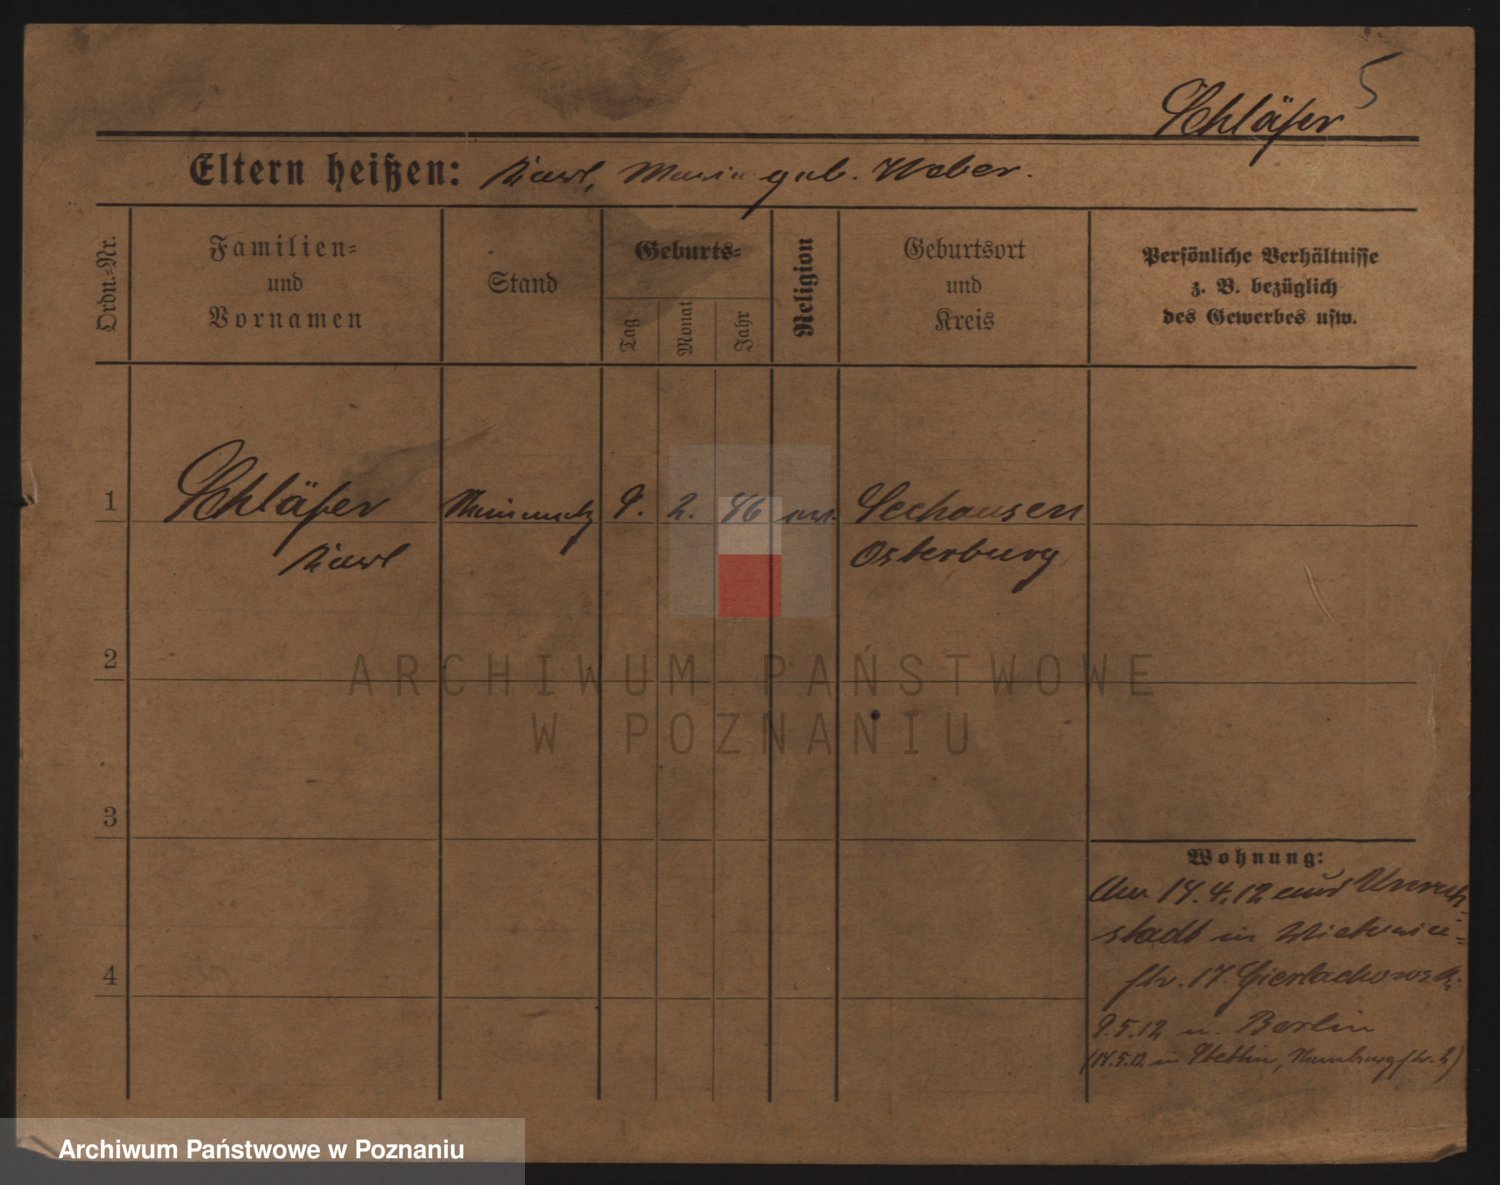 5
Schläfer
Eltern heißen: Karl, Maria geb. Weber.
Ordn.=Nr.
Familien=
und
Vornamen
Stand
Geburts=
Tag
Monat
Jahr
Religion
Geburtsort
und
Kreis
Persönliche Verhältnisse
z. B. bezüglich
des Gewerbes usw.
1
Schläfer
Karl
9. 2. 46
Seehausen
Osterburg
2
3
4
Wohnung:
Am 14.4.12 aus Unruh=
stadt in
str. 17
9.5.12 n. Berlin
(14.5.12 in Stettin,
ARCHIWUM PAŃSTWOWE
W POZNANIU
Archiwum Państwowe w Poznaniu